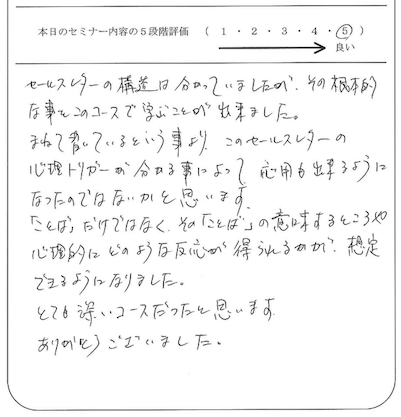 本日のセミナー内容の5段階評価 ( 1 ・ 2 ・ 3 ・ 4 ・ 5 )
良い
セールスレターの構造は分かっていましたが、その根本的
な事をこのコースで学ぶことが出来ました。
まねて書いているという事より、このセールスレターの
心理トリガーが分かる事によって 応用も出来るように
なったのではないかと思います。
「ことば」だけではなく、その「ことば」の意味するところや
心理的にどのような反応が得られるかが、想定
できるようになりました。
とても深いコースだったと思います。
ありがとうございました。